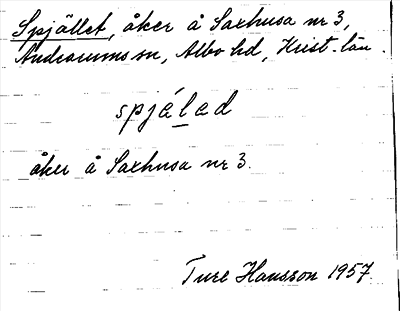 Spjället, åker å Saxhusa nr 3,
Andrarums sn, Albo hd, Krist. län.
spjálad
åker å Saxhusa nr 3.
Ture Hansson 1957.